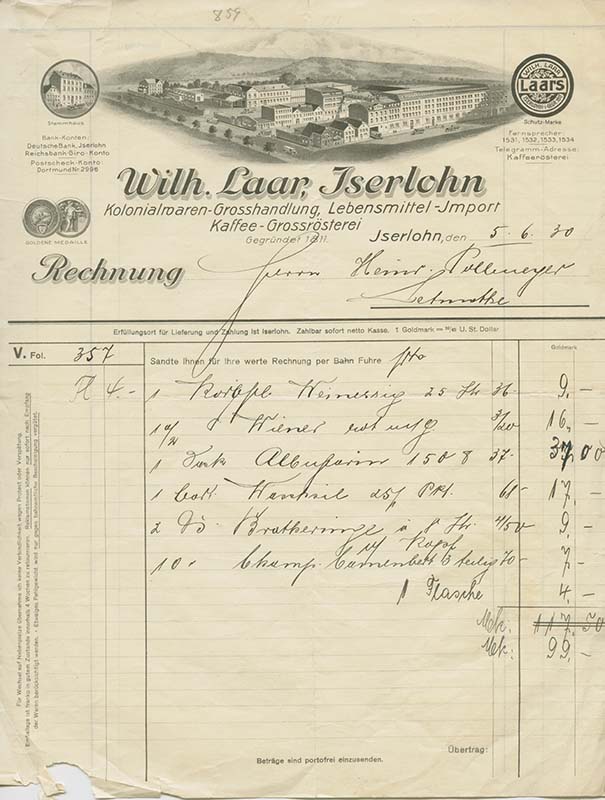 859
Stammhaus
WILH. LAAR
Laars
Schutz-Marke
Bank-Konten:
Deutsche Bank, Jserlohn
Reichsbank-Giro-Konto
Postscheck-Konto
Dortmund Nr 2996
Fernsprecher:
1531, 1532, 1533, 1534
Telegramm-Adresse:
Kaffeerösterei
Wilh. Laar, Jserlohn
Kolonialwaren-Grosshandlung, Lebensmittel-Jmport
Kaffee-Grossrösterei
Gegründet 1811.
GOLDENE MEDAILLE
Jserlohn, den 5. 6. 30
Rechnung
Herrn Heinr. Pollmeyer
Letmathe
Erfüllungsort für Lieferung und Zahlung ist Iserlohn. Zahlbar sofort netto Kasse. 1 Goldmark = U. St. Dollar
V. Fol. 357
Sandte Ihnen für Ihre werte Rechnung per Bahn Fuhre
Goldmark
4.-
1 Weinessig 25 36- 9.-
Wiener 16.-
1 150 37- 37,00
1 25 17.-
2 Bratheringe 4/50 9.-
10 Champ. Camenbert 6 teilig 70- 7.-
1 Flasche 4.-
Mk. 117.50
Mk. 99.-
Übertrag:
Beträge sind portofrei einzusenden.
Für Wechsel auf Nebenplätze übernehme ich keine Verbindlichkeit wegen Protest oder Verspätung.
Emballage ist franko in gutem Zustande innerhalb 4 Wochen zu retournieren. Reklamationen können nur sofort nach Empfang
der Waren berücksichtigt werden. - Etwaiges Fehlgewicht wird nur gegen bahnamtliche Bescheinigung vergütet.